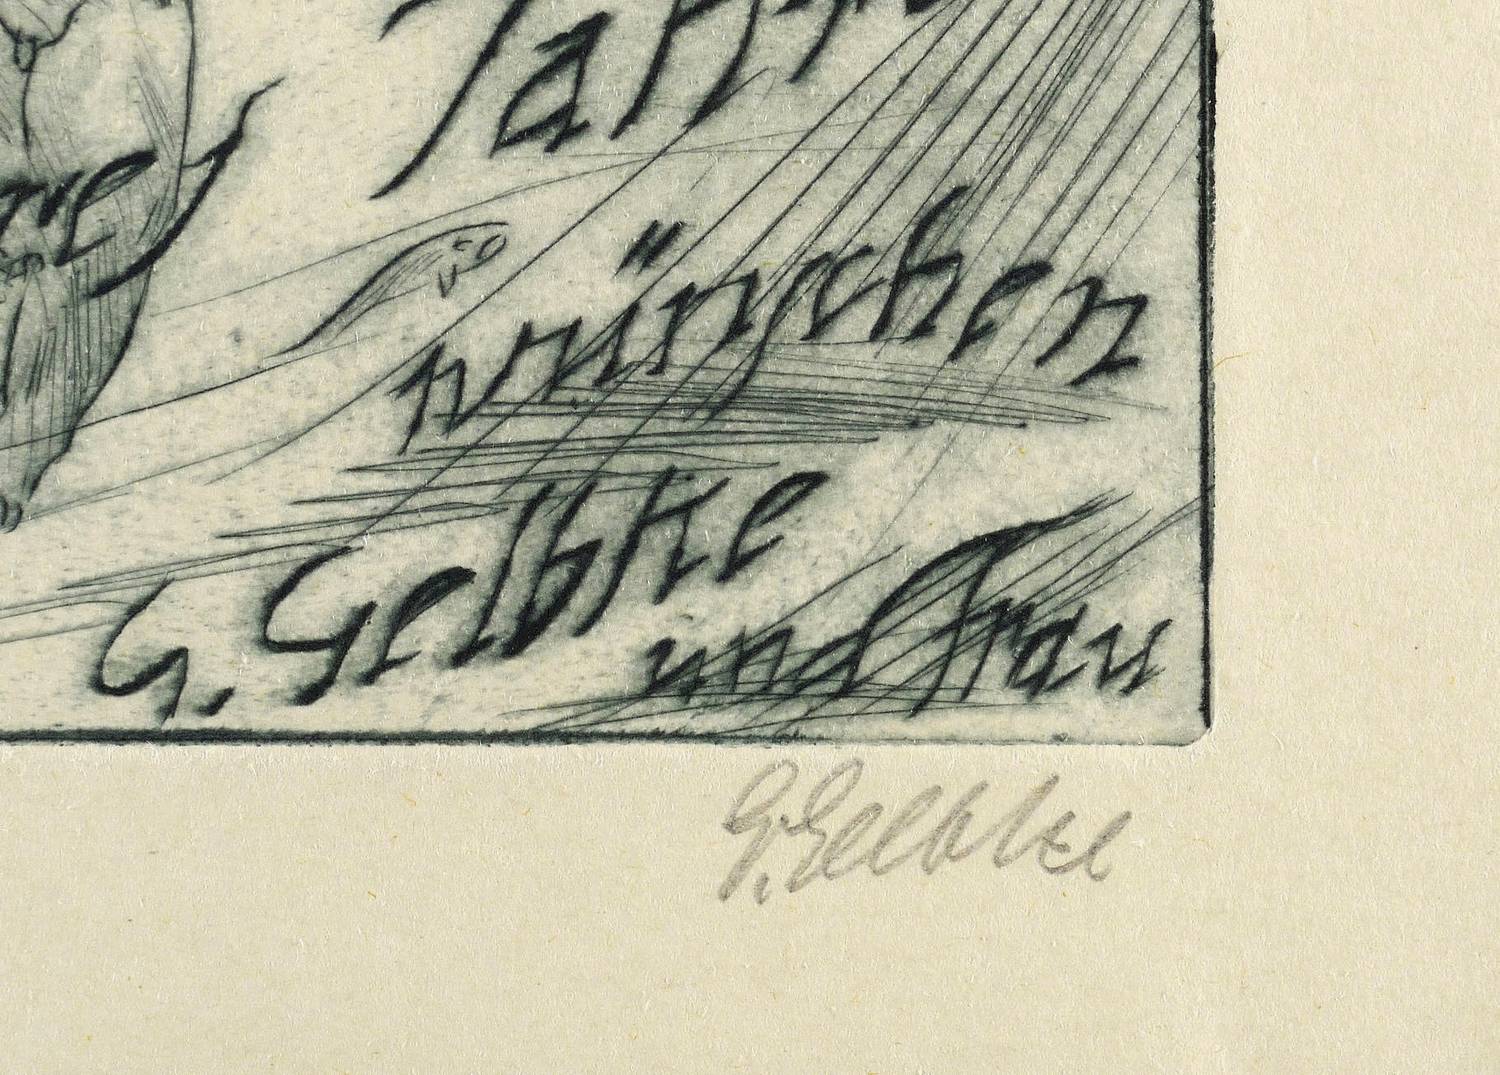 wünschen
G. Gelbke
und Frau
G. Gelbke